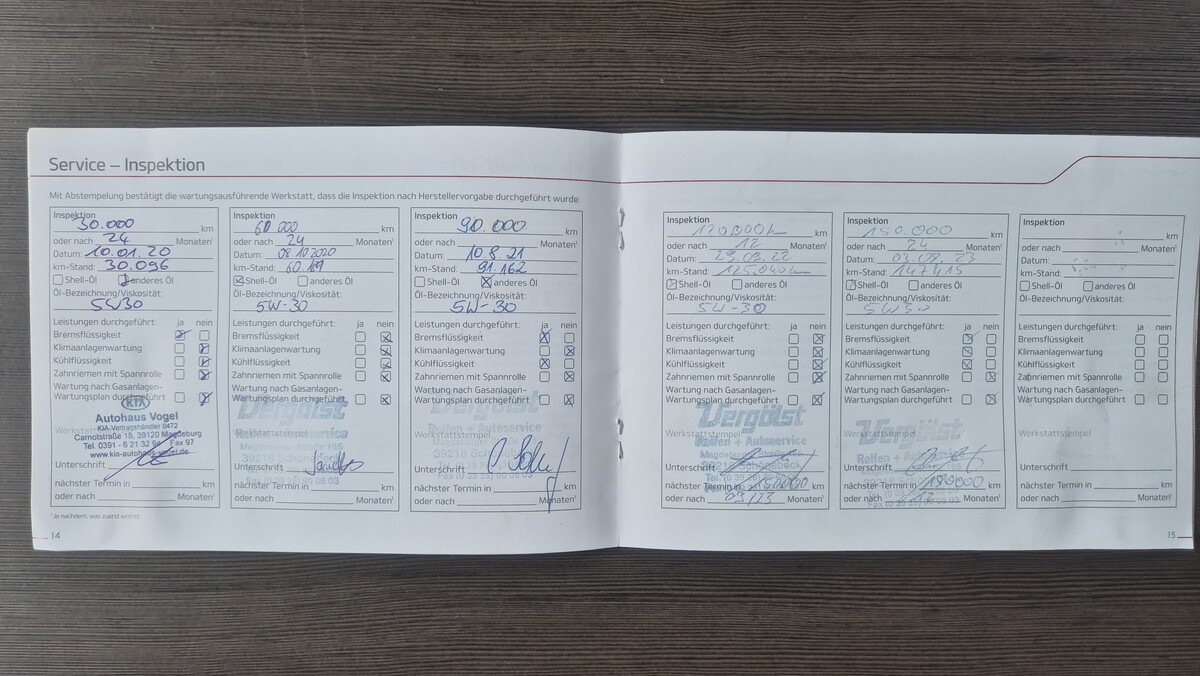 Service – Inspektion
Mit Abstempelung bestätigt die wartungsausführende Werkstatt, dass die Inspektion nach Herstellervorgabe durchgeführt wurde.
Inspektion
30.000 km
oder nach 24 Monaten¹
Datum: 10.01.20
km-Stand: 30.096
Shell-Öl anderes Öl
Öl-Bezeichnung/Viskosität:
5W30
Leistungen durchgeführt: ja nein
Bremsflüssigkeit
Klimaanlagenwartung
Kühlflüssigkeit
Zahnriemen mit Spannrolle
Wartung nach Gasanlagen-
Wartungsplan durchgeführt
KIA
Autohaus Vogel
KIA-Vertragshändler 0472
Carnotstraße 18, 39120 Magdeburg
Tel. 0391 - 6 21 32 Fax 97
www.kia-autohaus-vogel.de
Unterschrift
nächster Termin in km
oder nach Monaten¹
¹ Je nachdem, was zuerst eintritt
14
Inspektion
60 000 km
oder nach 24 Monaten¹
Datum: 08.10.2020
km-Stand: 60.189
Shell-Öl anderes Öl
Öl-Bezeichnung/Viskosität:
5W-30
Leistungen durchgeführt: ja nein
Bremsflüssigkeit
Klimaanlagenwartung
Kühlflüssigkeit
Zahnriemen mit Spannrolle
Wartung nach Gasanlagen-
Wartungsplan durchgeführt
Vergölst
Werkstattstempel
Unterschrift
nächster Termin in km
oder nach Monaten¹
Inspektion
90.000 km
oder nach Monaten¹
Datum: 10.8.21
km-Stand: 91.162
Shell-Öl anderes Öl
Öl-Bezeichnung/Viskosität:
5W-30
Leistungen durchgeführt: ja nein
Bremsflüssigkeit
Klimaanlagenwartung
Kühlflüssigkeit
Zahnriemen mit Spannrolle
Wartung nach Gasanlagen-
Wartungsplan durchgeführt
Vergölst
Reifen + Autoservice
Werkstattstempel
Unterschrift
nächster Termin in km
oder nach Monaten¹
Inspektion
120000km km
oder nach 12 Monaten¹
Datum: 29.09.22
km-Stand: 125.040km
Shell-Öl anderes Öl
Öl-Bezeichnung/Viskosität:
5W-30
Leistungen durchgeführt: ja nein
Bremsflüssigkeit
Klimaanlagenwartung
Kühlflüssigkeit
Zahnriemen mit Spannrolle
Wartung nach Gasanlagen-
Wartungsplan durchgeführt
Vergölst
Werkstattstempel
Reifen + Autoservice
39218 Schönebeck
Unterschrift
nächster Termin in 150000 km
oder nach 09/23 Monaten¹
Inspektion
150.000 km
oder nach 24 Monaten¹
Datum: 03.08.23
km-Stand: 147415
Shell-Öl anderes Öl
Öl-Bezeichnung/Viskosität:
5W30
Leistungen durchgeführt: ja nein
Bremsflüssigkeit
Klimaanlagenwartung
Kühlflüssigkeit
Zahnriemen mit Spannrolle
Wartung nach Gasanlagen-
Wartungsplan durchgeführt
Werkstattstempel
Vergölst
Reifen + Autoservice
Unterschrift
nächster Termin in km
oder nach 12 Monaten¹
Inspektion
km
oder nach Monaten¹
Datum:
km-Stand:
Shell-Öl anderes Öl
Öl-Bezeichnung/Viskosität:
Leistungen durchgeführt: ja nein
Bremsflüssigkeit
Klimaanlagenwartung
Kühlflüssigkeit
Zahnriemen mit Spannrolle
Wartung nach Gasanlagen-
Wartungsplan durchgeführt
Werkstattstempel
Unterschrift
nächster Termin in km
oder nach Monaten¹
15